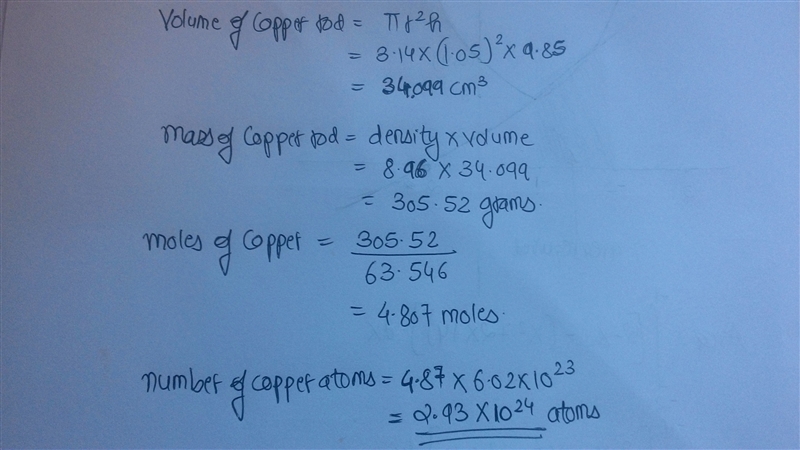 Volume of Copper rod = πr²h
= 3.14 X (1.05)² X 9.85
= 34.099 cm³
mass of Copper rod = density x volume
= 8.96 X 34.099
= 305.52 grams.
moles of Copper = 305.52
63.546
= 4.807 moles.
number of copper atoms = 4.87 X 6.02X10²³
= 2.93 X10²⁴ atoms